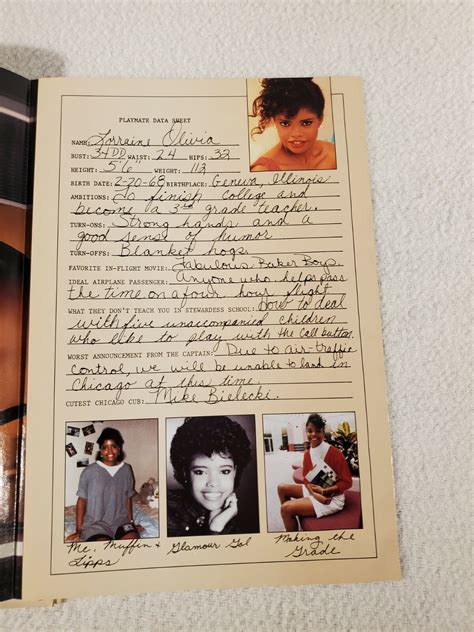 PLAYMATE DATA SHEET
NAME: Lorraine Olivia
BUST: 34DD WAIST: 24 HIPS: 32
HEIGHT: 5'6" WEIGHT: 112
BIRTH DATE: 2-20-68 BIRTHPLACE: Geneva, Illinois
AMBITIONS: To finish college and
become a 3rd grade teacher.
TURN-ONS: Strong hands and a
good sense of humor
TURN-OFFS: Blanket hogs.
FAVORITE IN-FLIGHT MOVIE: Fabulous Baker Boys.
IDEAL AIRPLANE PASSENGER: Anyone who helps pass
the time on a four hour flight
WHAT THEY DON'T TEACH YOU IN STEWARDESS SCHOOL: How to deal
with five unaccompanied children
who like to play with the call button.
WORST ANNOUNCEMENT FROM THE CAPTAIN: Due to air-traffic
control, we will be unable to land in
Chicago at this time.
CUTEST CHICAGO CUB: Mike Bielecki
Me, Muffin &
Tipps
Glamour Gal
Making the
Grade